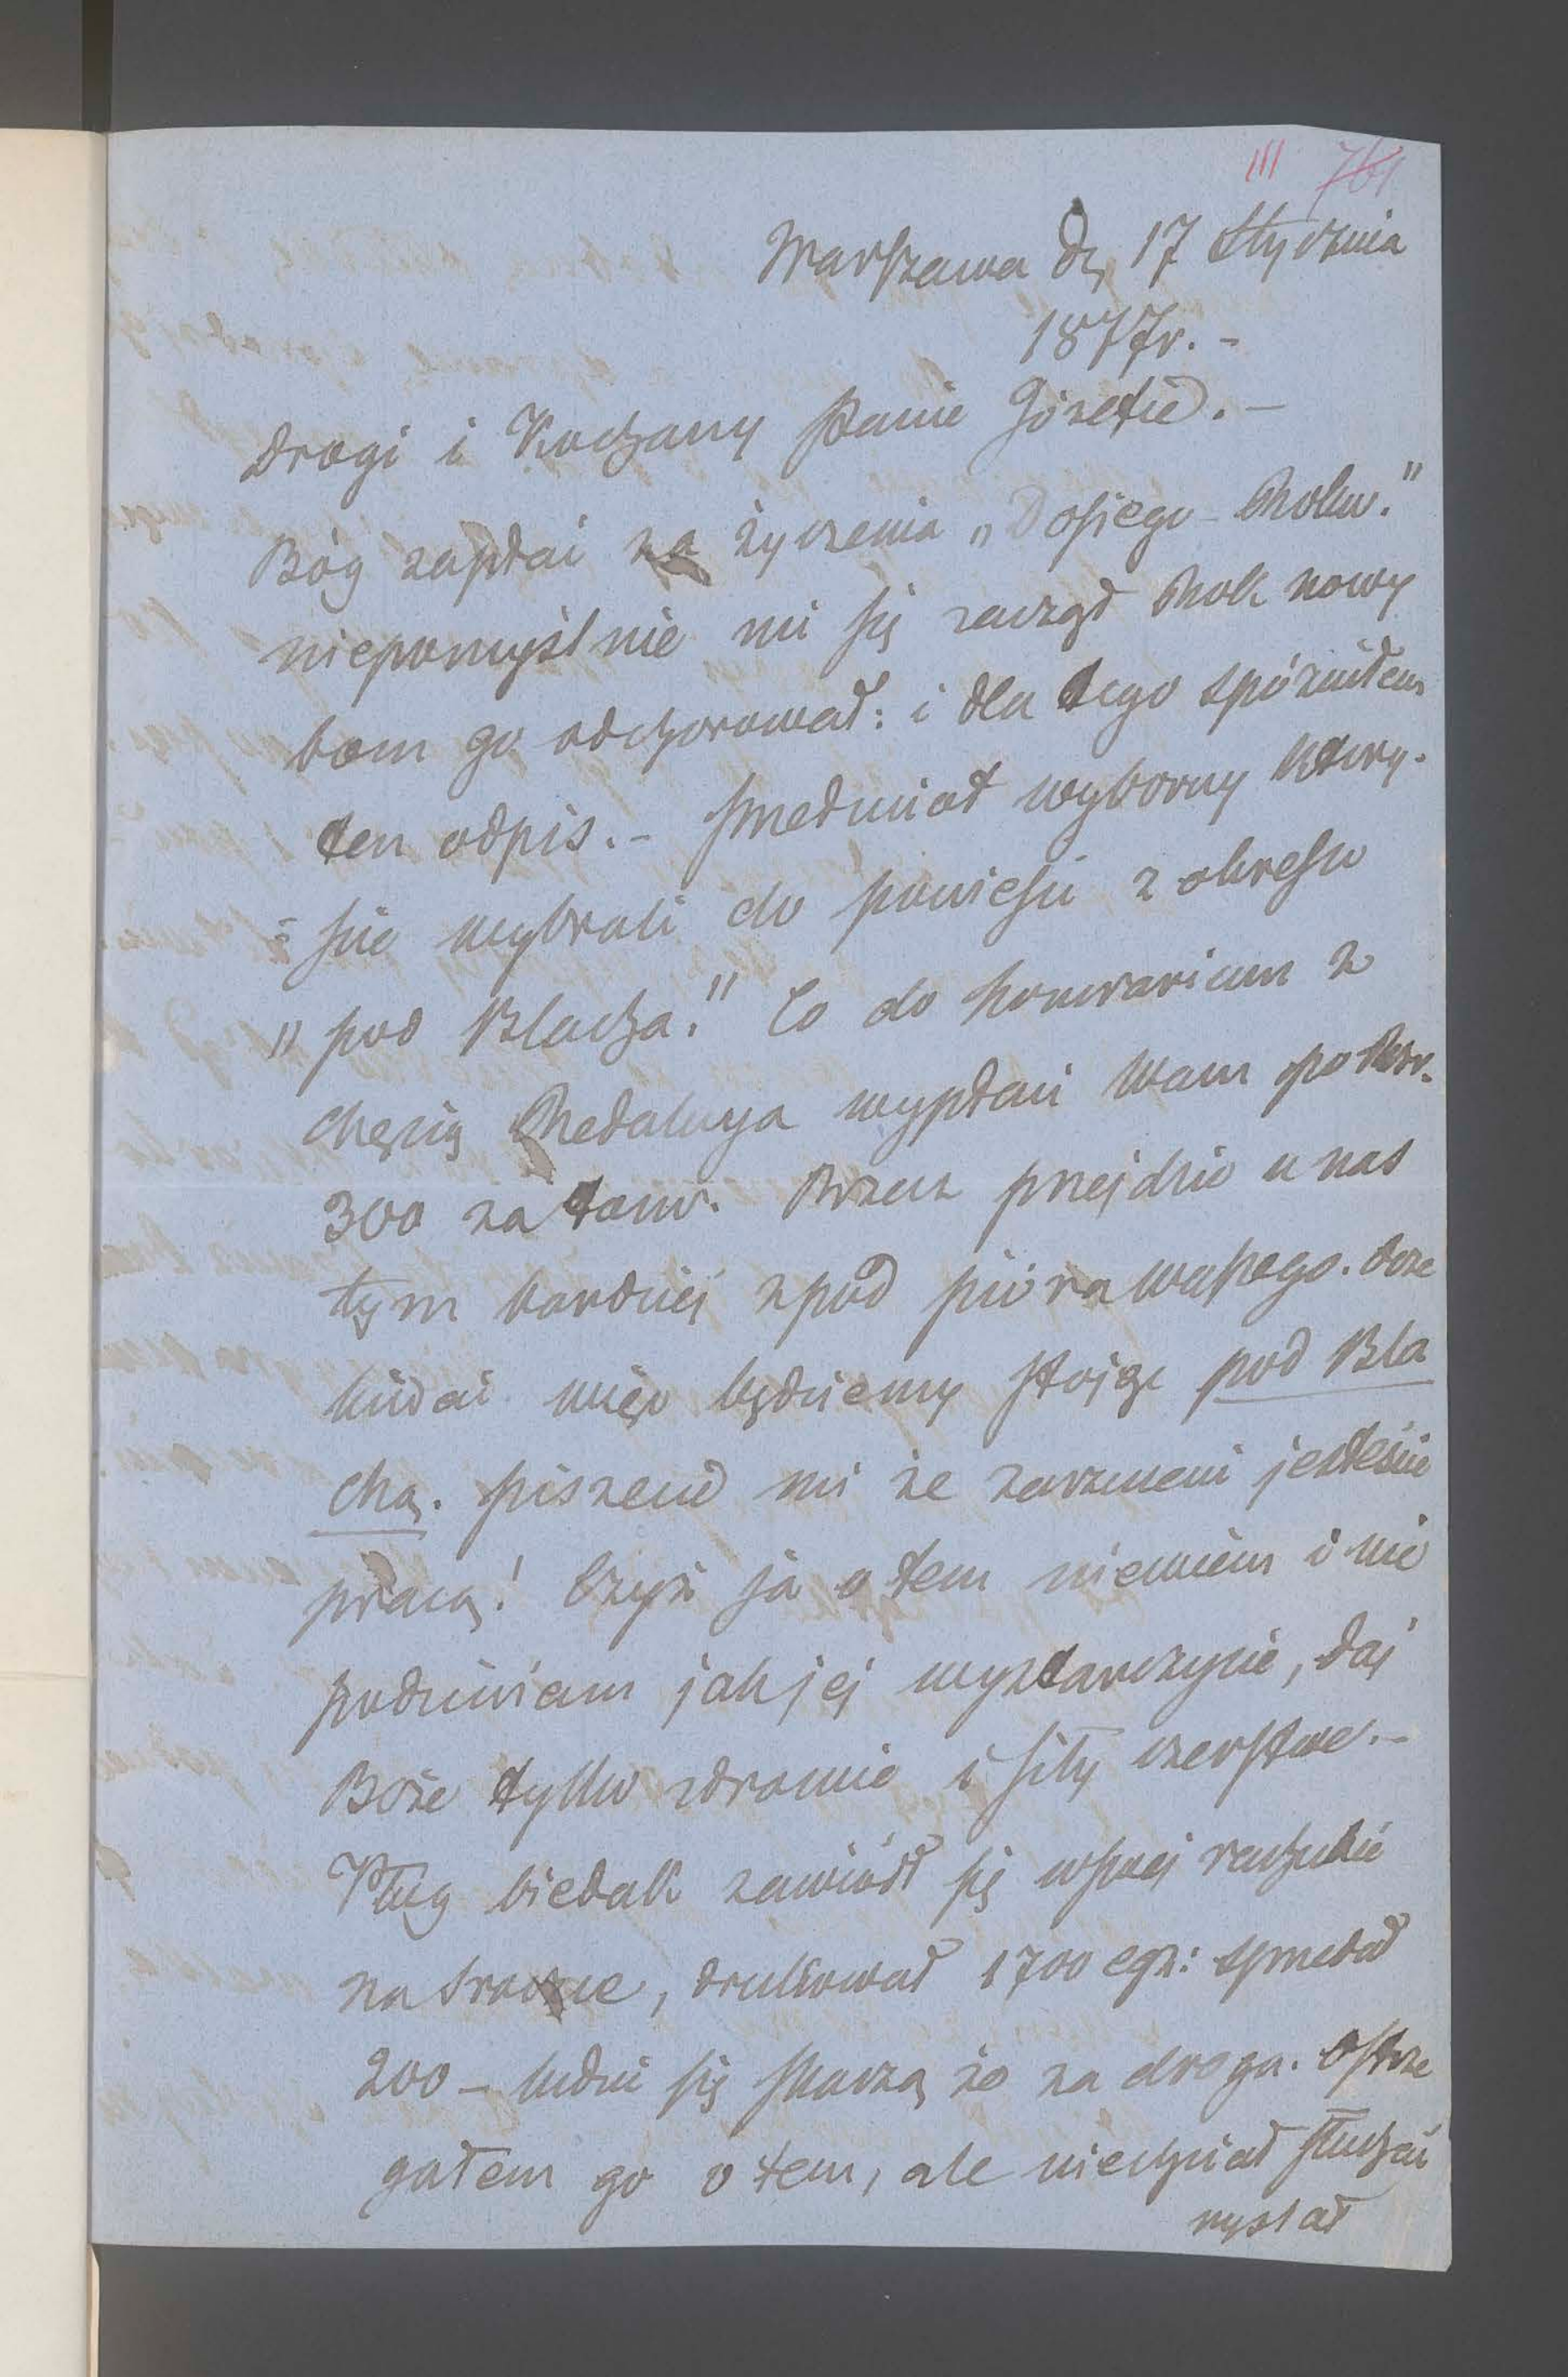 III 761
Warszawa d. 17 Stycznia
1877r. -
Drogi i Kochany Panie Józefie. -
Bóg zapłać za życzenia „Dosiego Roku."
niepomyślnie mi się zaczął Rok nowy
bom go odchorował: i dla tego spóźniłem
ten odpis. - Przedmiot wyborny któryś-
-cie wybrali do powieści z okresu
„pod Blachą." Co do honorarium z
chęcią Redakcya wypłaci Wam po Rsr.
300 za tom. Rzecz przejdzie u nas
tym bardziej z pod pióra waszego. Docze
kiwać więc będziemy stojąc pod Bla
chą. Piszecie mi że zarzuceni jesteście
pracą! Czyż ja o tem niewiem i nie
podziwiam jak jej wystarczycie, daj
Boże tylko zdrowie i siły czerstwe. -
Pług biedak zawiódł się w swej rachubie
na , drukował 1700 egz: sprzedał
200 - ludzie się skarżą że za droga. Ostrze
gałem go o tem, ale niechciał słuchać
myślał